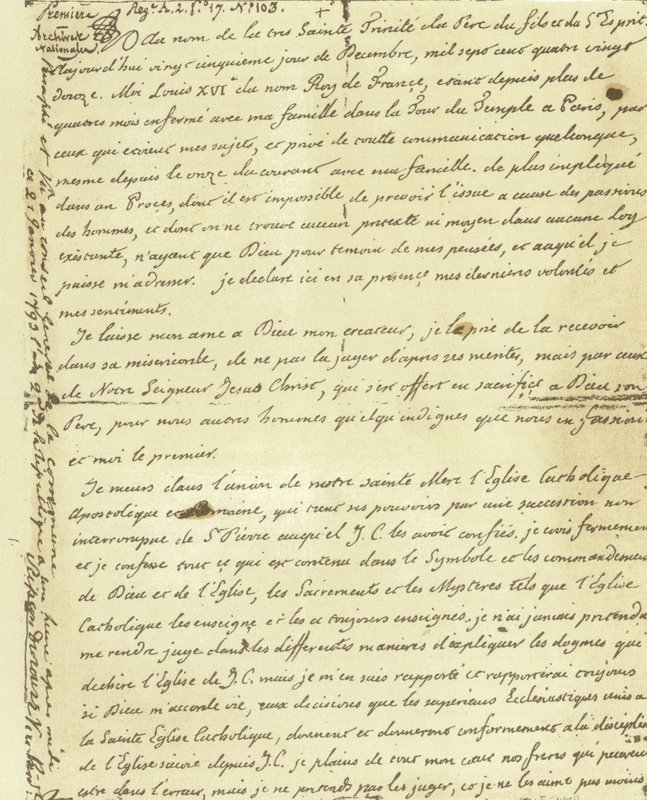 Première
Regre A. 2. fo. 17. No. 103.
Archives
Nationales.
Au nom de la tres Sainte Trinité du Pere du fils et du St Esprit.
aujourd'hui vingt cinquieme jour de Decembre, mil sept cent quatre vingt
douze. Moi Louis XVIe du nom Roy de France, etant depuis plus de
quatres mois enfermé avec ma famille dans la Tour du Temple a Paris, par
ceux qui etoient mes sujets, et privé de toutte communication quelconque,
mesme depuis le onze du courant avec ma famille. de plus impliqué
dans un Procès, dont il est impossible de prevoir l'issue a cause des passions
des hommes, et dont on ne trouve aucun pretexte ni moyen dans aucune Loy
existante, n'ayant que Dieu pour temoin de mes pensées, et auquel je
puisse m'adresser. je declare ici en sa presence mes dernieres volontés et
mes sentiments.
Je laisse mon ame a Dieu mon createur, je le prie de la recevoir
dans sa misericorde, de ne pas la juger d'apres ses merites, mais par ceux
de Notre Seigneur Jesus Christ, qui s'est offert en sacrifice a Dieu son
Pere, pour nous autres hommes quelqu'indignes que nous en fussions
et moi le premier.
Je meurs dans l'union de notre sainte Mere l'Eglise Catholique
Apostolique et Romaine, qui tient ses pouvoirs par une succession non
interrompue de St Pierre auquel J.C. les avoit confiés, je crois fermement
et je confesse tout ce qui est contenu dans le Symbole et les commandements
de Dieu et de l'Eglise, les Sacrements et les Mysteres tels que l'Eglise
Catholique les enseigne et les a toujours enseignés. je n'ai jamais pretendu
me rendre juge dans les differentes manieres d'expliquer les dogmes qui
dechire l'Eglise de J.C. mais je m'en suis rapporté et rapporterai toujours
si Dieu m'accorde vie, aux decisions que les superieurs Ecclesiastiques unis a
la Sainte Eglise Catholique, donnent et donneront conformement a la discipline
de l'Eglise suivie depuis J.C. je plains de tout mon cœur nos freres qui peuvent
estre dans l'erreur, mais je ne pretends pas les juger, et je ne les aime pas moins
paraphé et lu au conseil general de la commune
ce 21 Janvier 1793 l'an 2 de la republique a une heure apres midi